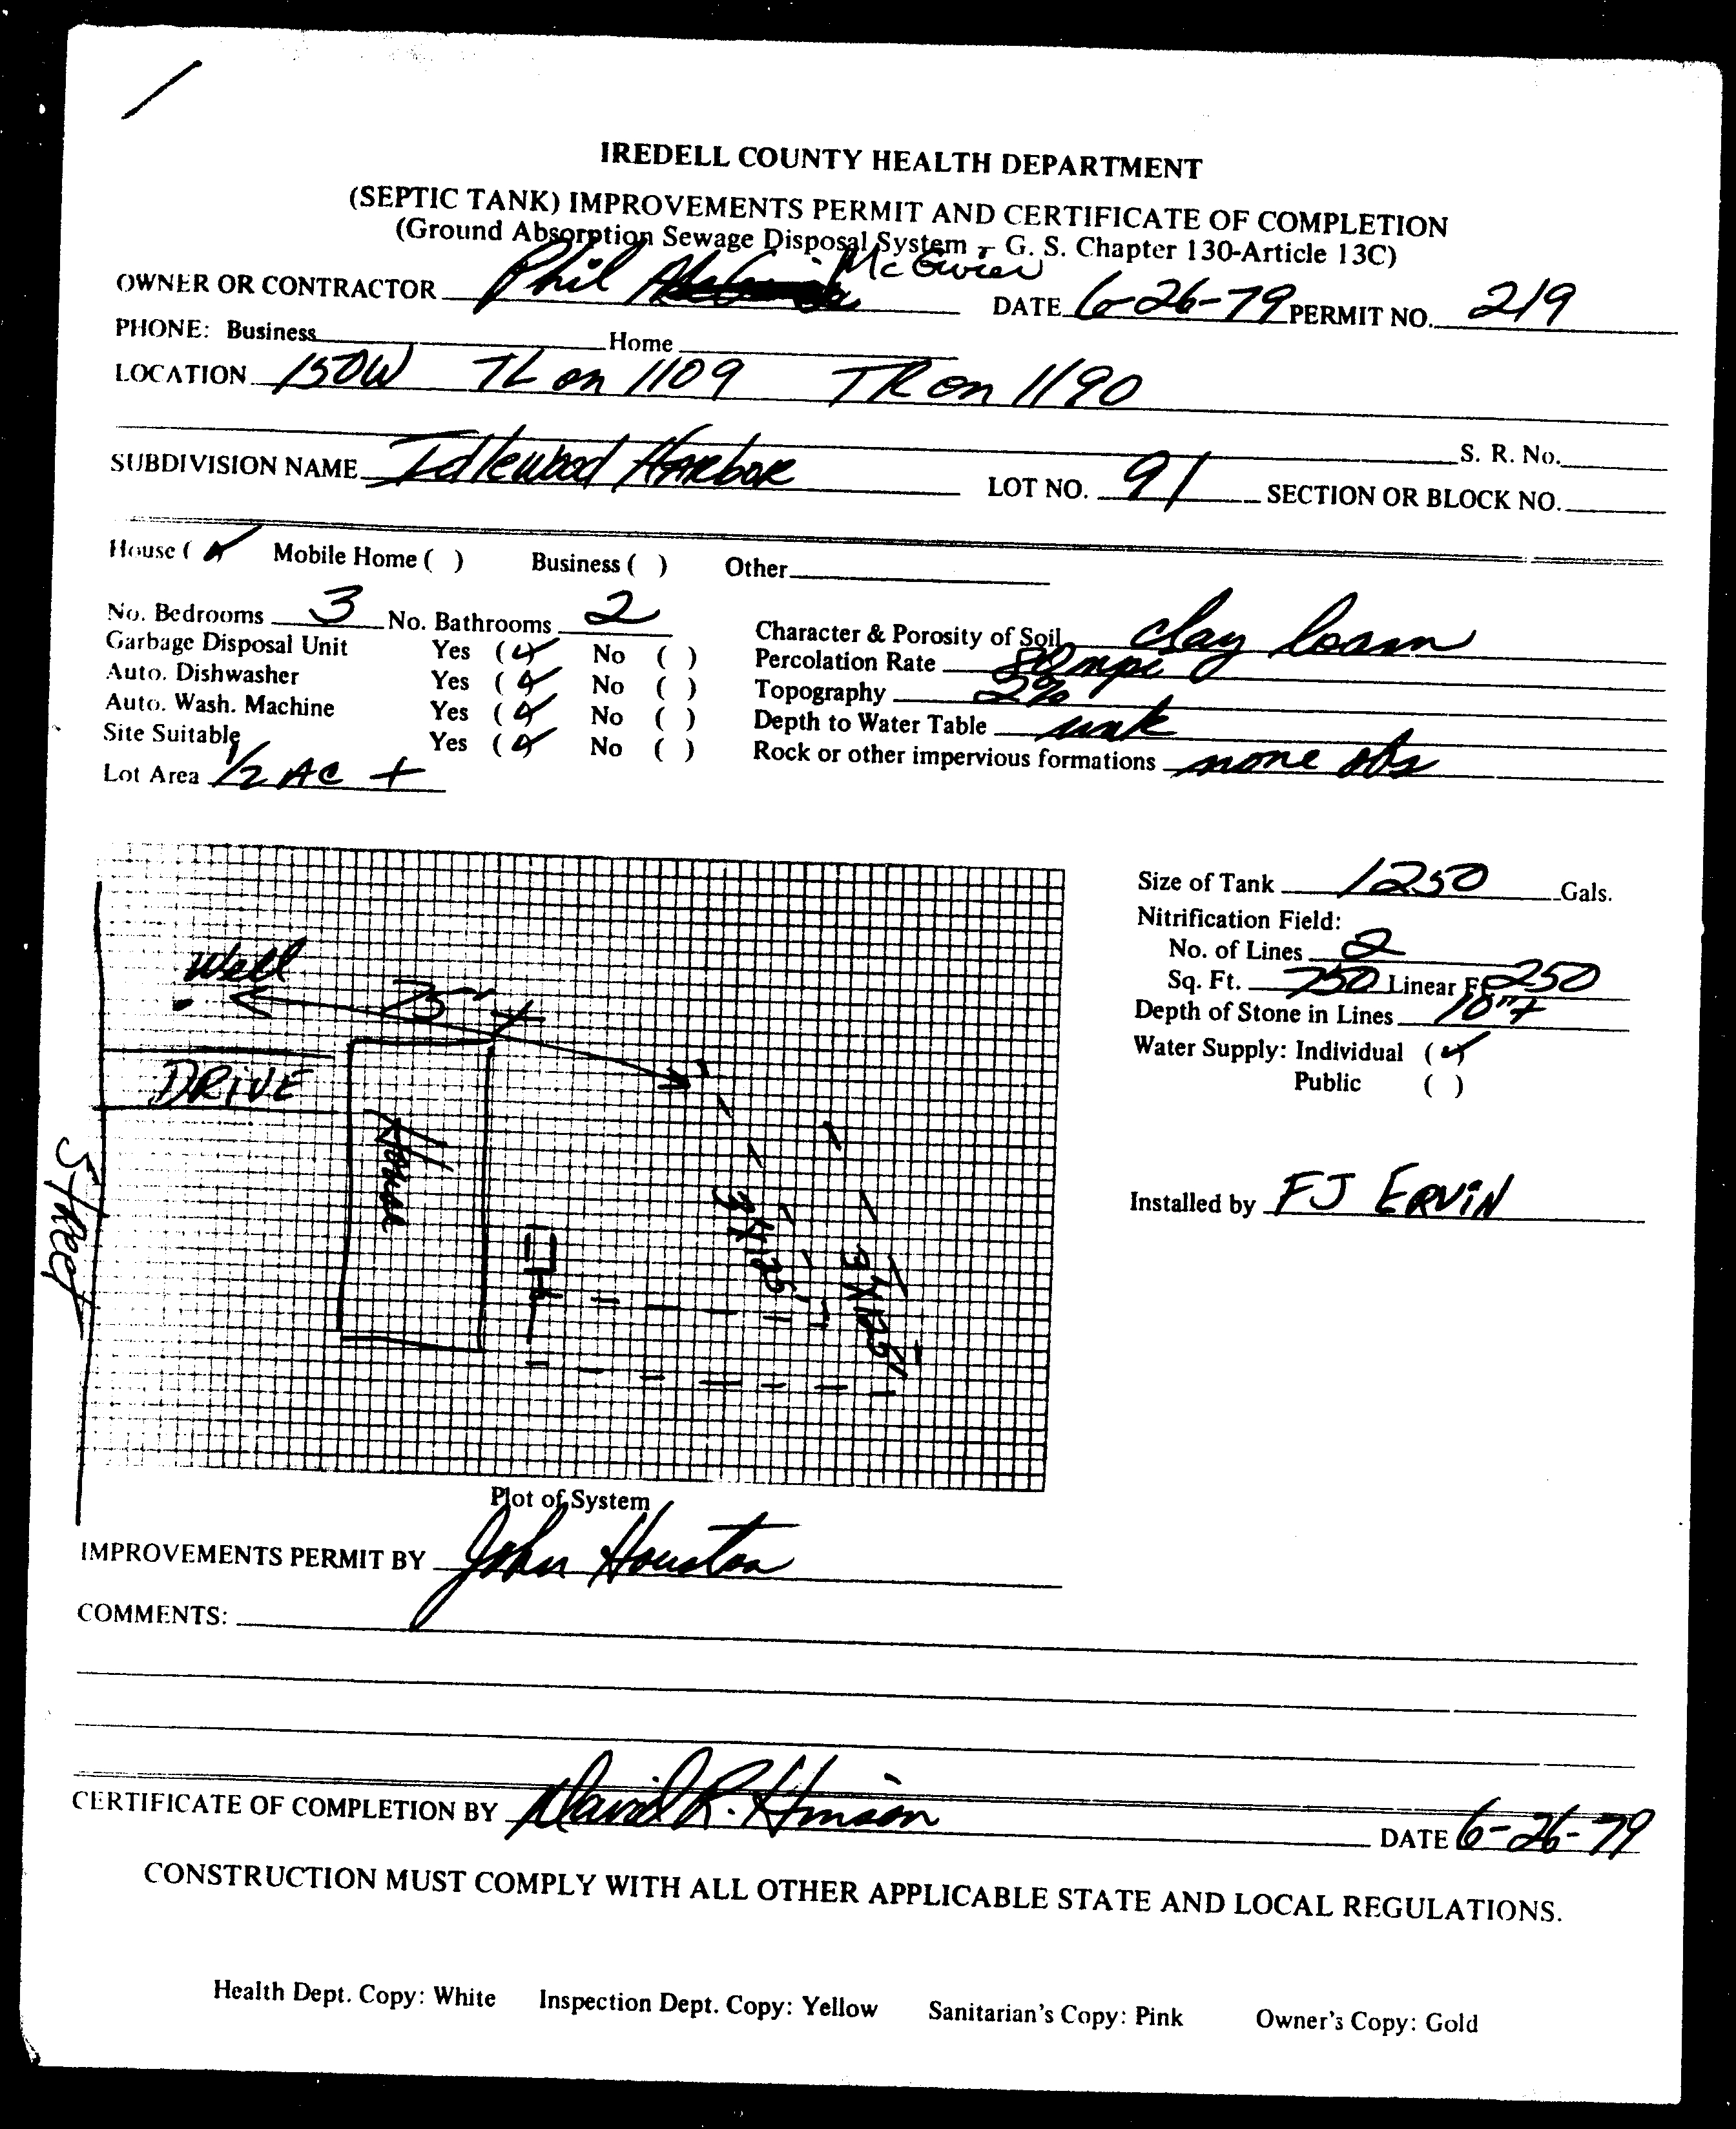 IREDELL COUNTY HEALTH DEPARTMENT
(SEPTIC TANK) IMPROVEMENTS PERMIT AND CERTIFICATE OF COMPLETION
(Ground Absorption Sewage Disposal System - G. S. Chapter 130-Article 13C)
OWNER OR CONTRACTOR Phil DATE 6-26-79 PERMIT NO. 219
PHONE: Business Home
LOCATION 150W TL on 1109 TR on 1190
S. R. No.
SUBDIVISION NAME Idlewood Harbor LOT NO. 91 SECTION OR BLOCK NO.
House ( ) Mobile Home ( ) Business ( ) Other
No. Bedrooms 3 No. Bathrooms 2
Garbage Disposal Unit Yes (✓) No ( )
Auto. Dishwasher Yes (✓) No ( )
Auto. Wash. Machine Yes (✓) No ( )
Site Suitable Yes (✓) No ( )
Lot Area 1/2 AC +
Character & Porosity of Soil clay loam
Percolation Rate mpi
Topography 2%
Depth to Water Table unk
Rock or other impervious formations none obs
Well
75' +
DRIVE
House
Street
3 X 125'
3 X 125'
Size of Tank 1250 Gals.
Nitrification Field:
No. of Lines 2
Sq. Ft. 750 Linear Ft. 250
Depth of Stone in Lines 10"+
Water Supply: Individual (✓)
Public ( )
Installed by FJ ERVIN
Plot of System
IMPROVEMENTS PERMIT BY John Houston
COMMENTS:
CERTIFICATE OF COMPLETION BY David R. Hinson DATE 6-26-79
CONSTRUCTION MUST COMPLY WITH ALL OTHER APPLICABLE STATE AND LOCAL REGULATIONS.
Health Dept. Copy: White Inspection Dept. Copy: Yellow Sanitarian's Copy: Pink Owner's Copy: Gold